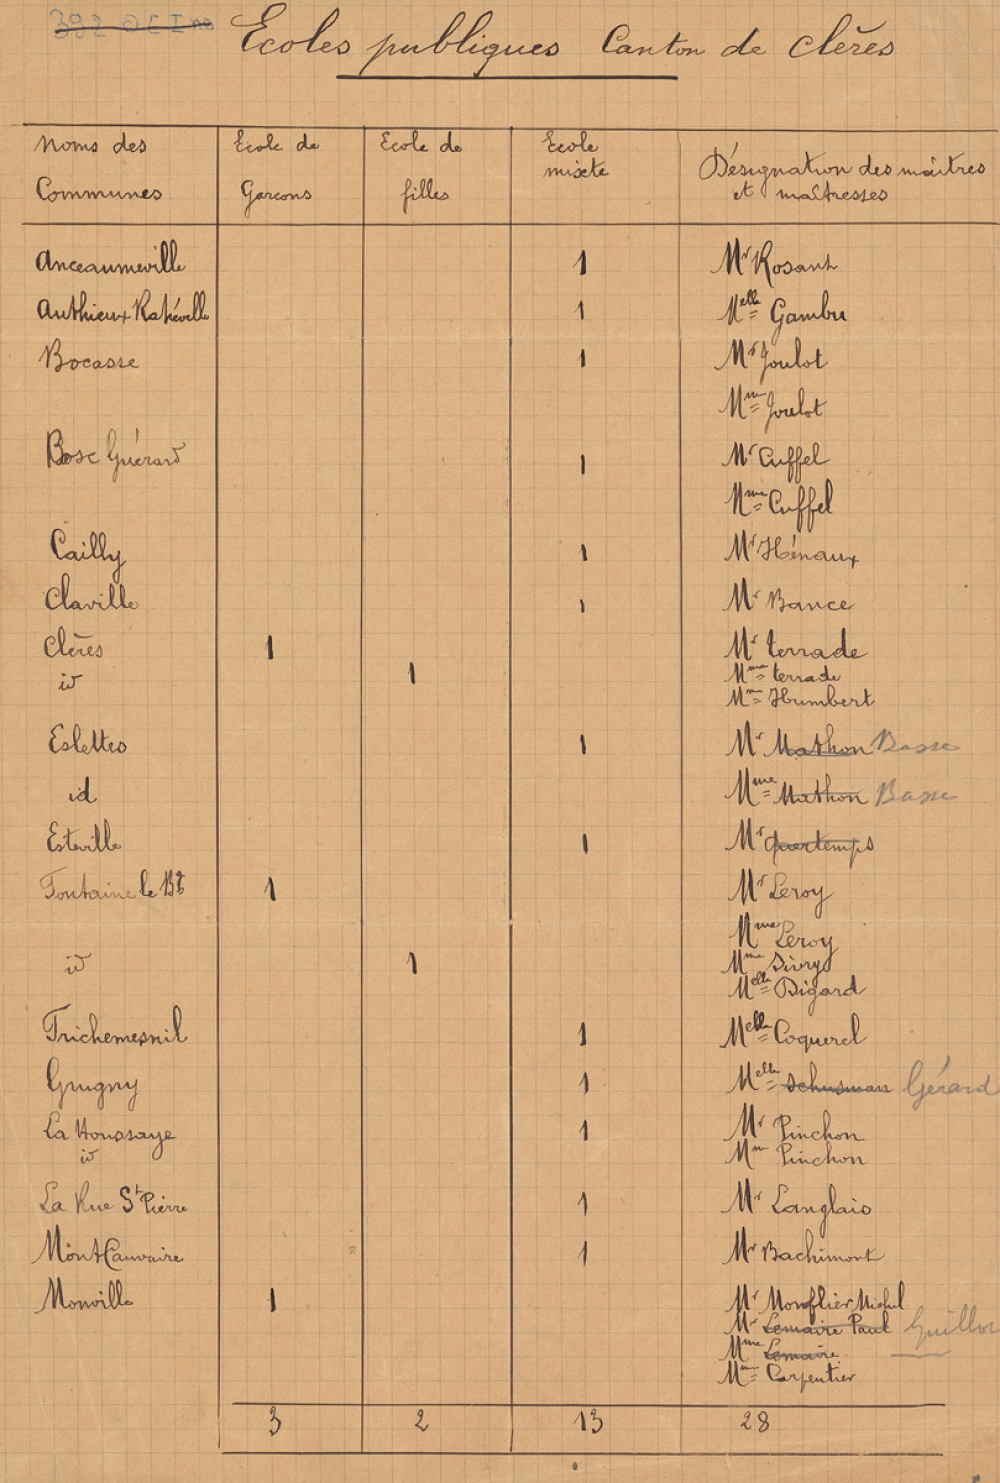 Ecoles publiques Canton de Clères
Noms des Communes | Ecole de Garcons | Ecole de filles | Ecole mixte | Désignation des maîtres et maîtresses
Anceaumeville | 1 | Mr Rosant
Authieux Ratiéville | 1 | Melle Gambu
Bocasse | 1 | Mr Joulot
Mme Joulot
Bosc Guérard | 1 | Mr Cuffel
Mme Cuffel
Cailly | 1 | Mr Hénaux
Claville | 1 | Mr Bance
Clères | 1 | Mr terrade
id | 1 | Mme terrade
Mme Humbert
Eslettes | 1 | Mr Mathon Basse
id | Mme Mathon Basse
Esteville | 1 | Mr Quertemps
Fontaine le Bg | 1 | Mr Leroy
Mme Leroy
id | 1 | Mme Divry
Melle Digard
Frichemesnil | 1 | Melle Coquerel
Grugny | 1 | Melle Schusman Gérard
La Houssaye | 1 | Mr Pinchon
id | Mme Pinchon
La Rue St Pierre | 1 | Mr Langlais
Mont Cauvaire | 1 | Mr Bachimont
Monville | 1 | Mr Monflier Michel
Mr Lemaire Paul Guillot
Mme Lemaire
Mme Carpentier
3 | 2 | 13 | 28